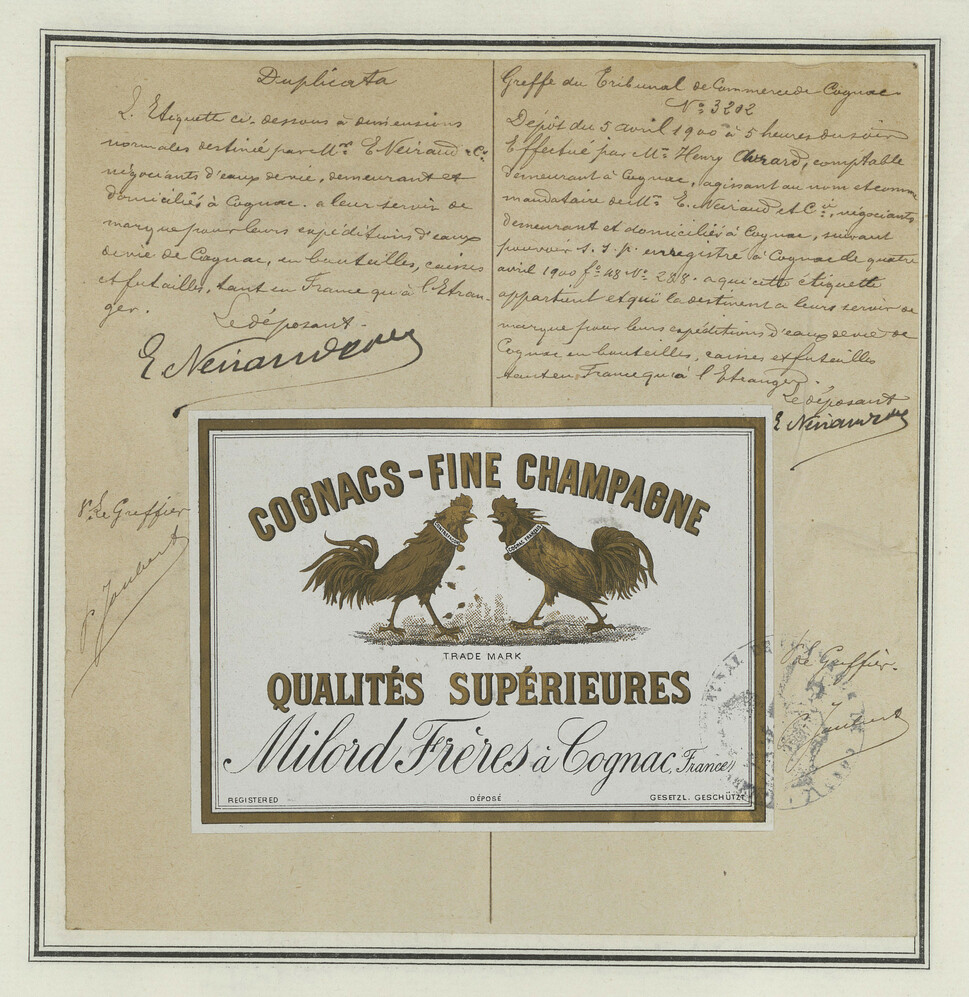 Duplicata
L'Etiquette ci-dessous à dimensions
normales destinée par Mrs E. Neiraud & Cie
négociants d'eaux de vie, demeurant et
domiciliés à Cognac. a leur servir de
marque pour leurs expéditions d'eaux
de vie de Cognac, en bouteilles, caisses
et futailles, tant en France qu'à l'Etran-
ger.
Le déposant.
Pr Le Greffier
P. Joubert
Greffe du Tribunal de Commerce de Cognac
No 3202
Dépôt du 5 avril 1900 à 5 heures du soir
Effectué par Mr Henry comptable
demeurant à Cognac, agissant au nom et comme
mandataire de Mrs E. Neiraud et Cie, négociants
demeurant et domiciliés à Cognac, suivant
pouvoir s.s.p. enregistré à Cognac le quatre
avril 1900 fo 48 No 288. a qui cette étiquette
appartient et qui la destinent a leurs servir de
marque pour leurs expéditions d'eaux de vie de
Cognac en bouteilles, caisses et futailles
tant en France qu'à l'Etranger.
Le déposant
COGNACS-FINE CHAMPAGNE
TRADE MARK
QUALITÉS SUPÉRIEURES
Milord Frères à Cognac, France
REGISTERED DÉPOSÉ GESETZL. GESCHÜTZT
Le Greffier.
Joubert